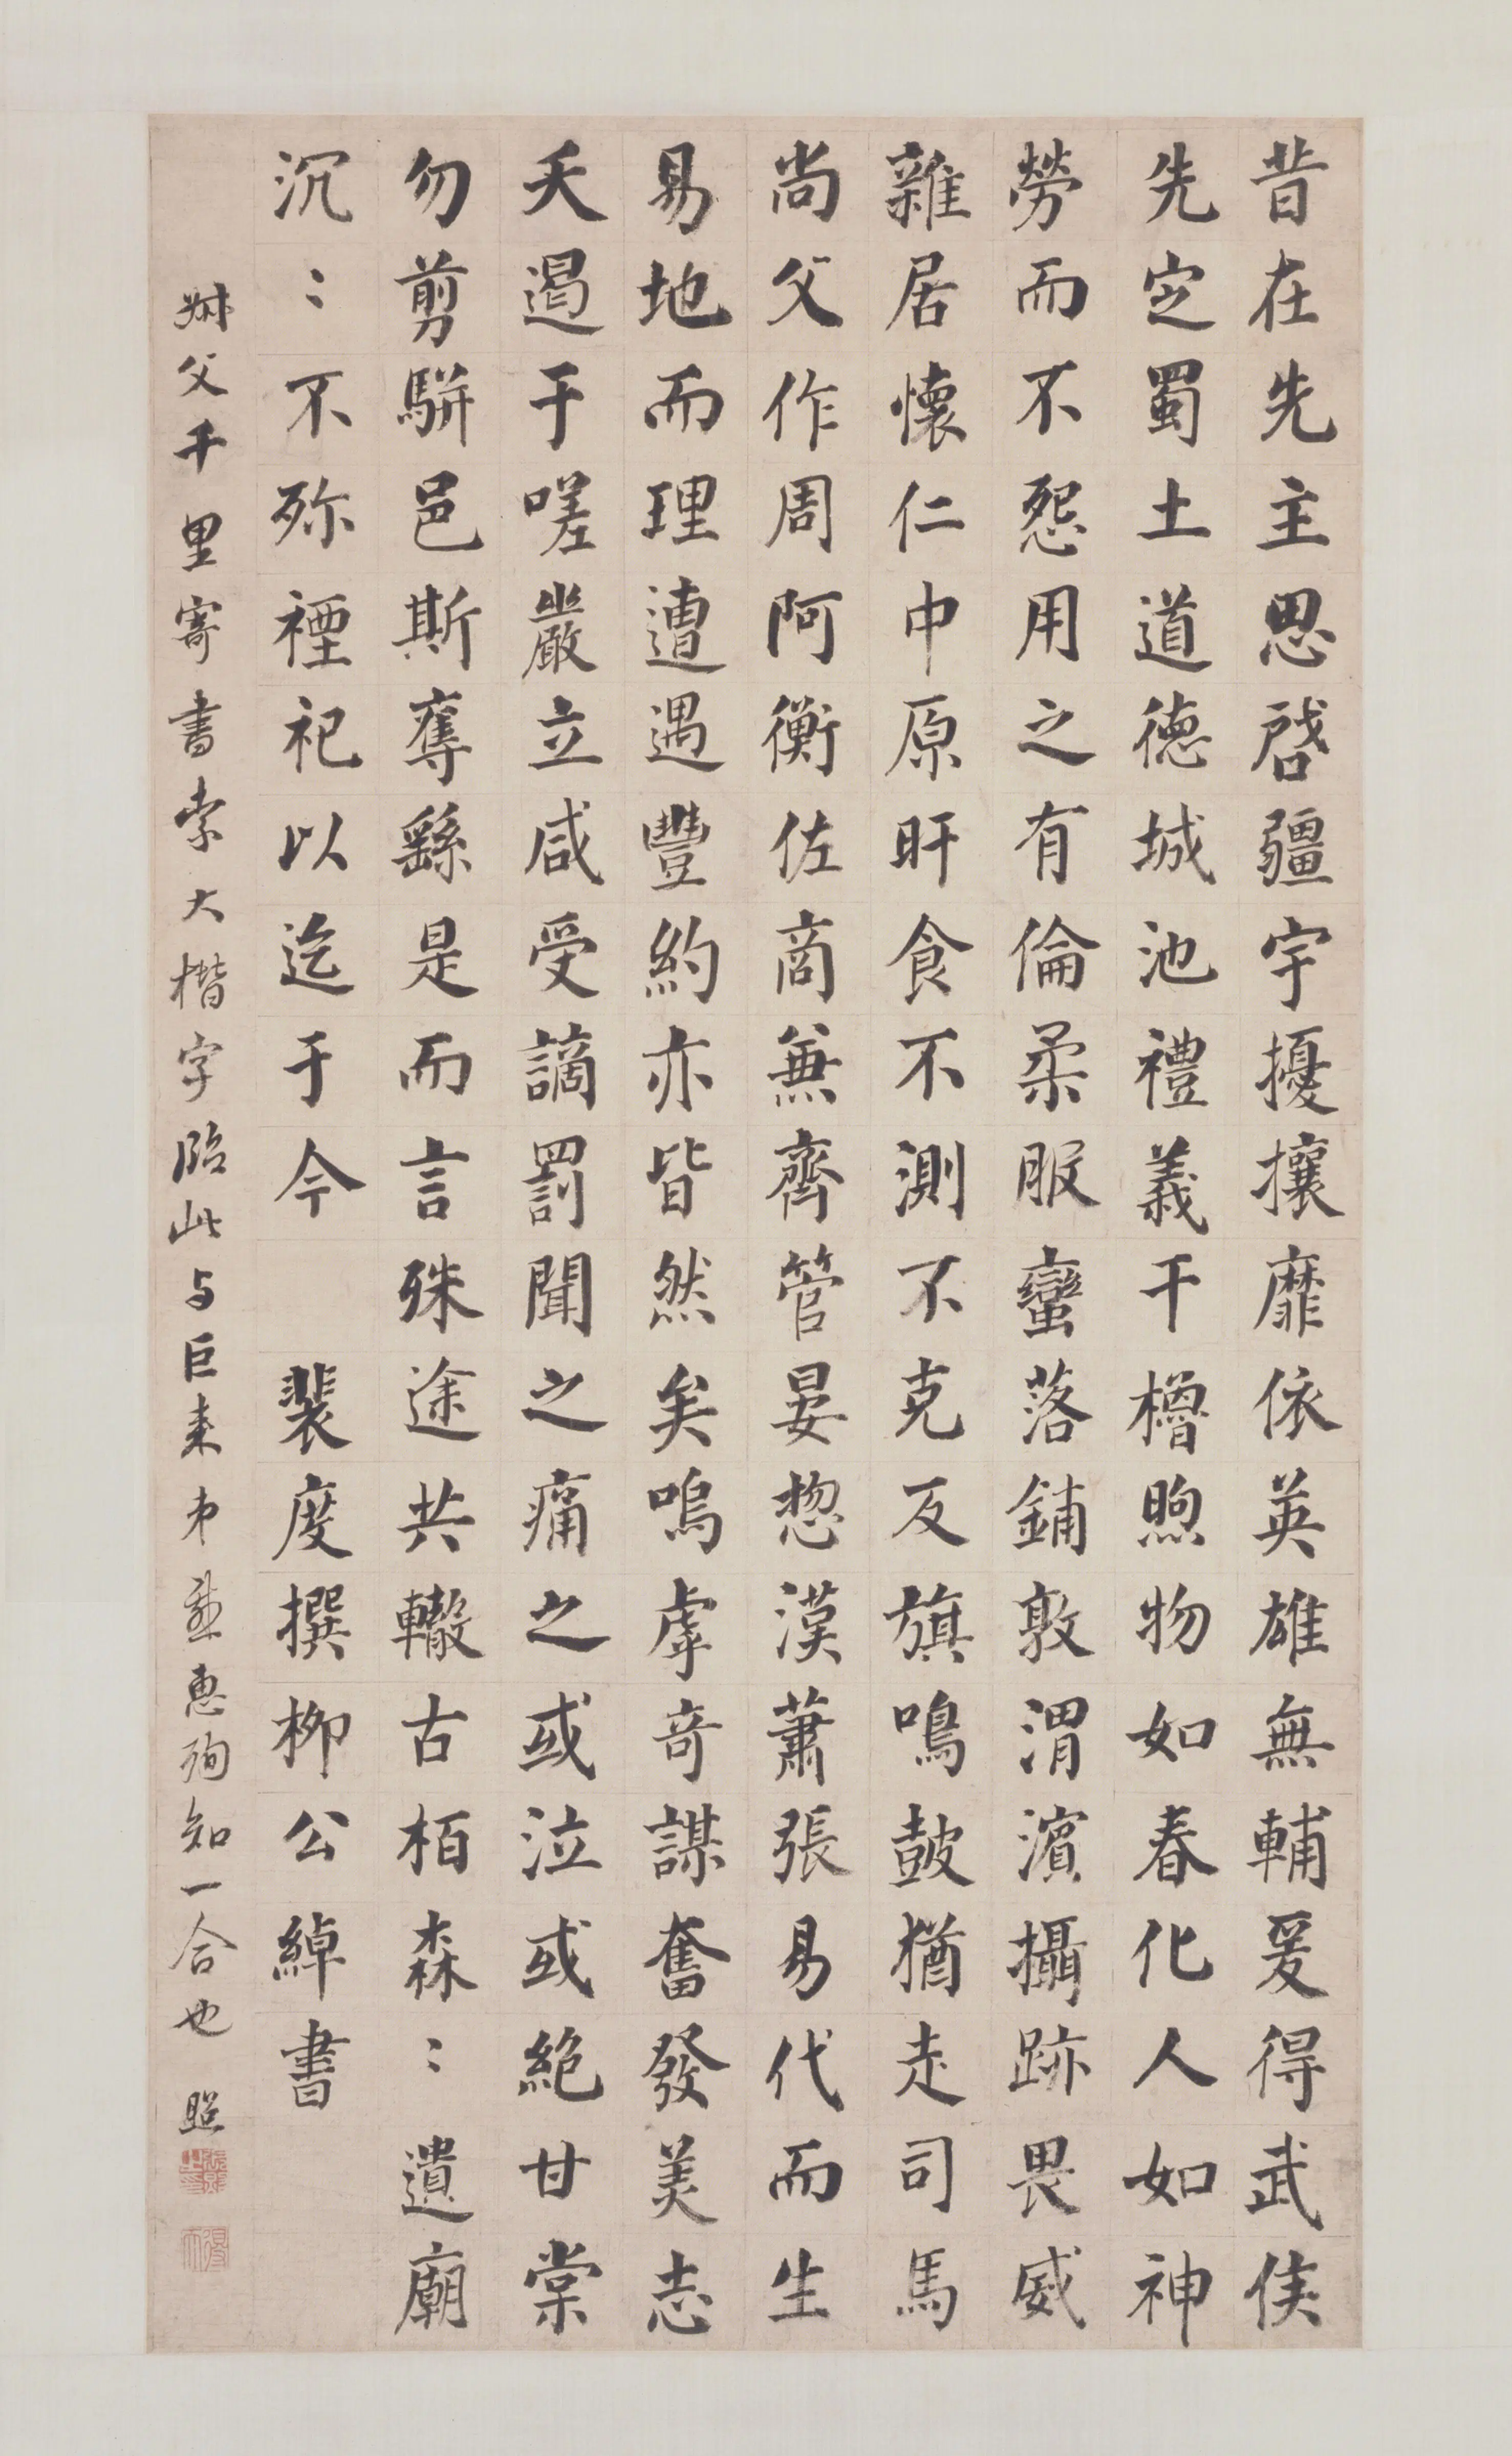 昔在先主思啓疆宇擾攘靡依英雄無輔爰得武侯
先定蜀土道德城池禮義干櫓煦物如春化人如神
勞而不怨用之有倫柔服蠻落鋪敦渭濱攝跡畏威
雜居懷仁中原旰食不測不克反旗鳴鼓猶走司馬
尚父作周阿衡佐商兼齊管晏揔漢蕭張易代而生
易地而理遭遇豐約亦皆然矣嗚虖奇謀奮發美志
夭遏于嗟嚴立咸受謫罰聞之痛之或泣或絕甘棠
勿剪駢邑斯奪繇是而言殊途共轍古栢森〻遺廟
沉〻不殄禋祀以迄于今 裴度撰柳公綽書
叔父千里寄書索大楷字臨此与巨来弟並惠殉知一合也 照